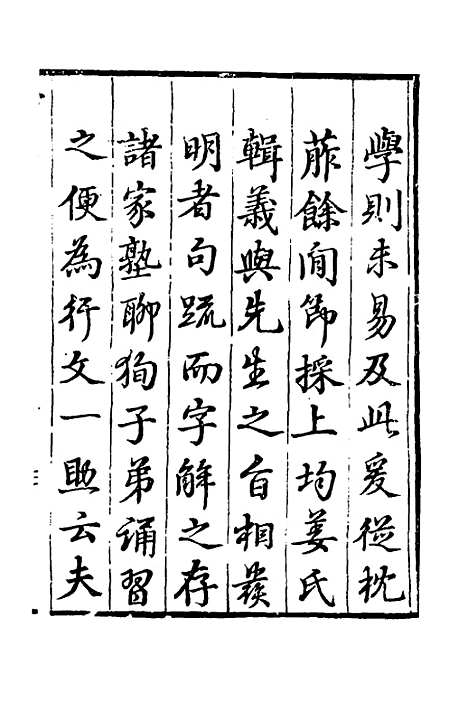 學則未易及此爰從枕
葄餘閒節採上均姜氏
輯義與先生之旨相發
明者句疏而字解之存
諸家塾聊狥子弟誦習
之便為行文一助云夫